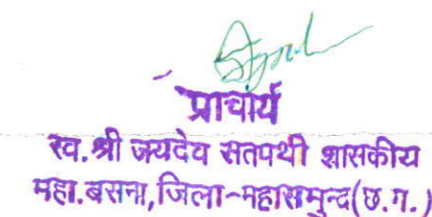 प्राचार्य
स्व. श्री जयदेव सतपथी शासकीय
महा. बसना, जिला-महासमुन्द (छ.ग.)